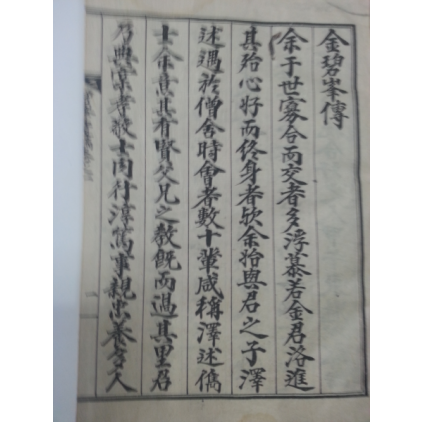 金碧峯傳
余于世寡合而交者多浮慕若金君洛進
其殆心好而終身者欤余始與君之子澤
述遇於僧舍時會者數十輩咸稱澤述儁
士余意其有賢父兄之教既而過其里君
乃典
孝
士内行淳篤事親忠養
人